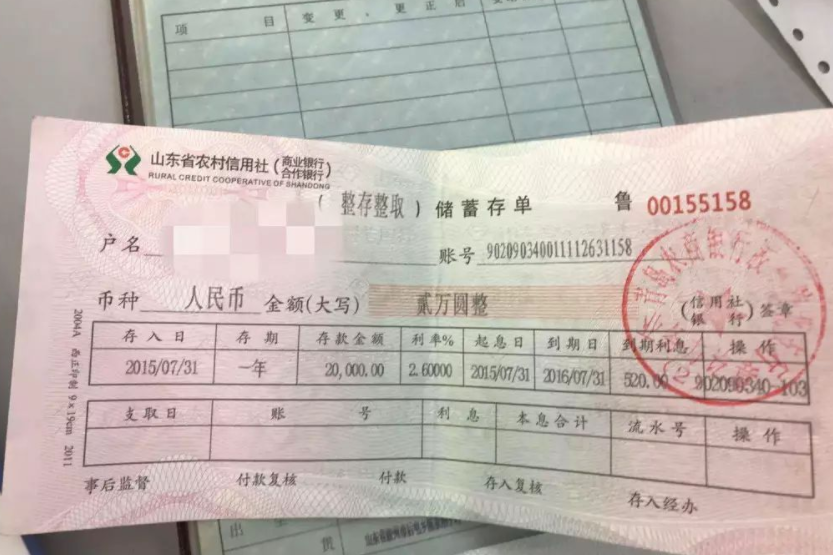 项 目 变更、更正后
山东省农村信用社(商业银行 合作银行)
RURAL CREDIT COOPERATIVE OF SHANDONG
(整存整取)储蓄存单 鲁 00155158
户名 账号 902090340011112631158
币种 人民币 金额(大写) 贰万圆整 (信用社 银行)签章
存入日 存期 存款金额 利率% 起息日 到期日 到期利息 操作
2015/07/31 一年 20,000.00 2.60000 2015/07/31 2016/07/31 520.00 902090340-103
支取日 账号 利息 本息合计 流水号 操作
事后监督 付款复核 付款 存入复核 存入经办
2004A 9×19cm 2011